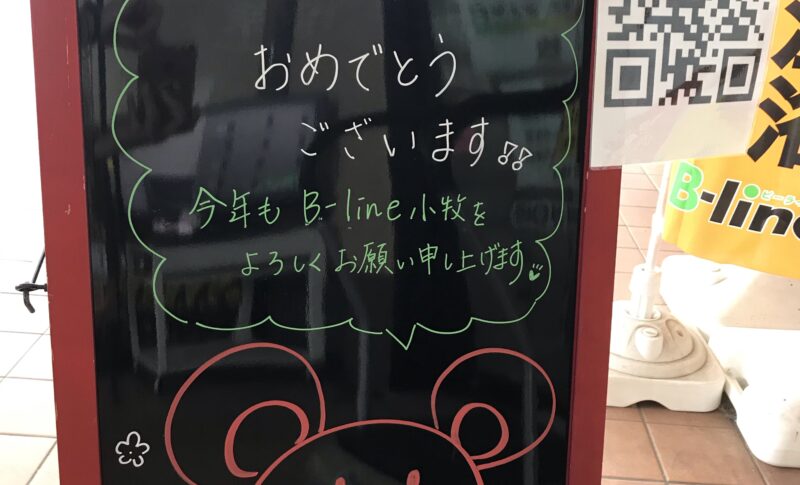 おめでとう
ございます!!
今年も B-line小牧を
よろしくお願い申し上げます
B-line